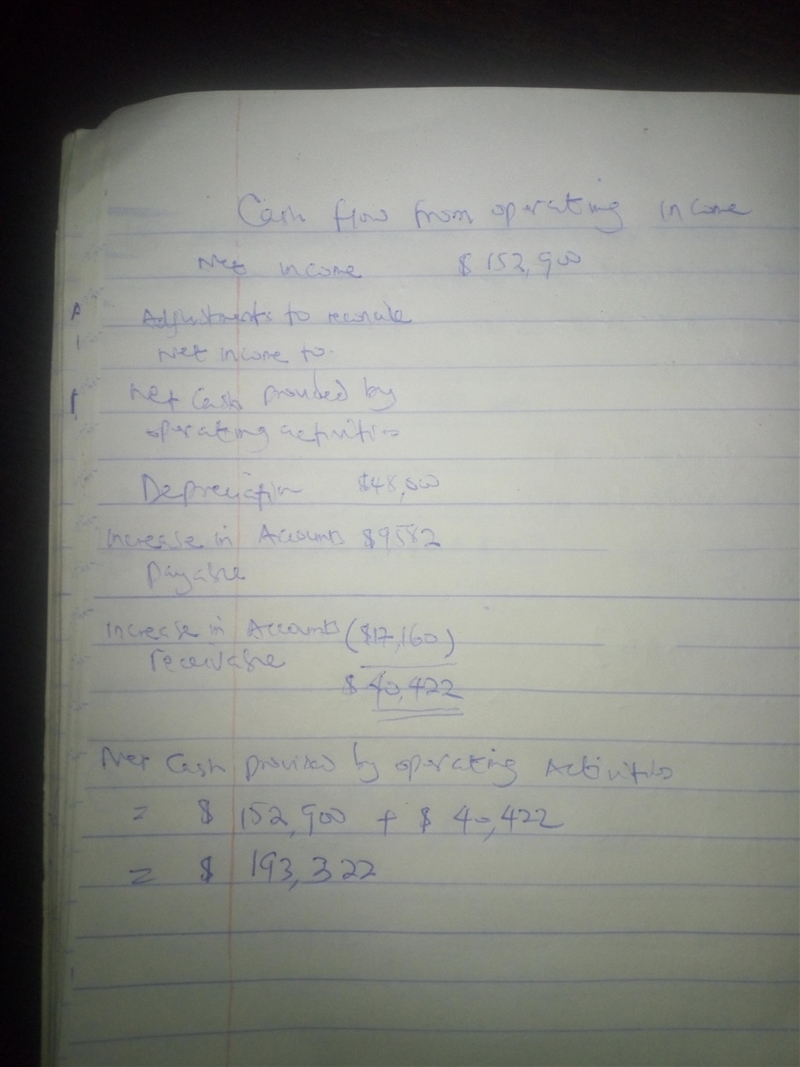 Cash flow from operating income
Net income $152,900
Adjustments to reconcile
Net income to
Net Cash provided by
operating activities
Depreciation $48,000
Increase in Accounts $9582
payable
Increase in Accounts ($17,160)
receivable
$40,422
Net Cash provided by operating Activities
= $ 152,900 + $ 40,422
= $ 193,322